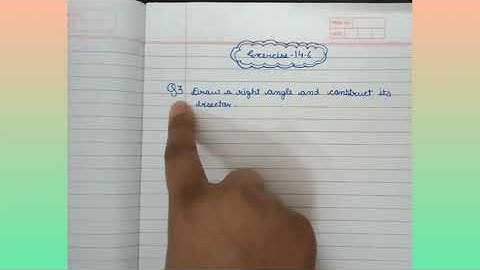 Exercise-14.6
Q3 Draw a right angle and construct its
bisector.